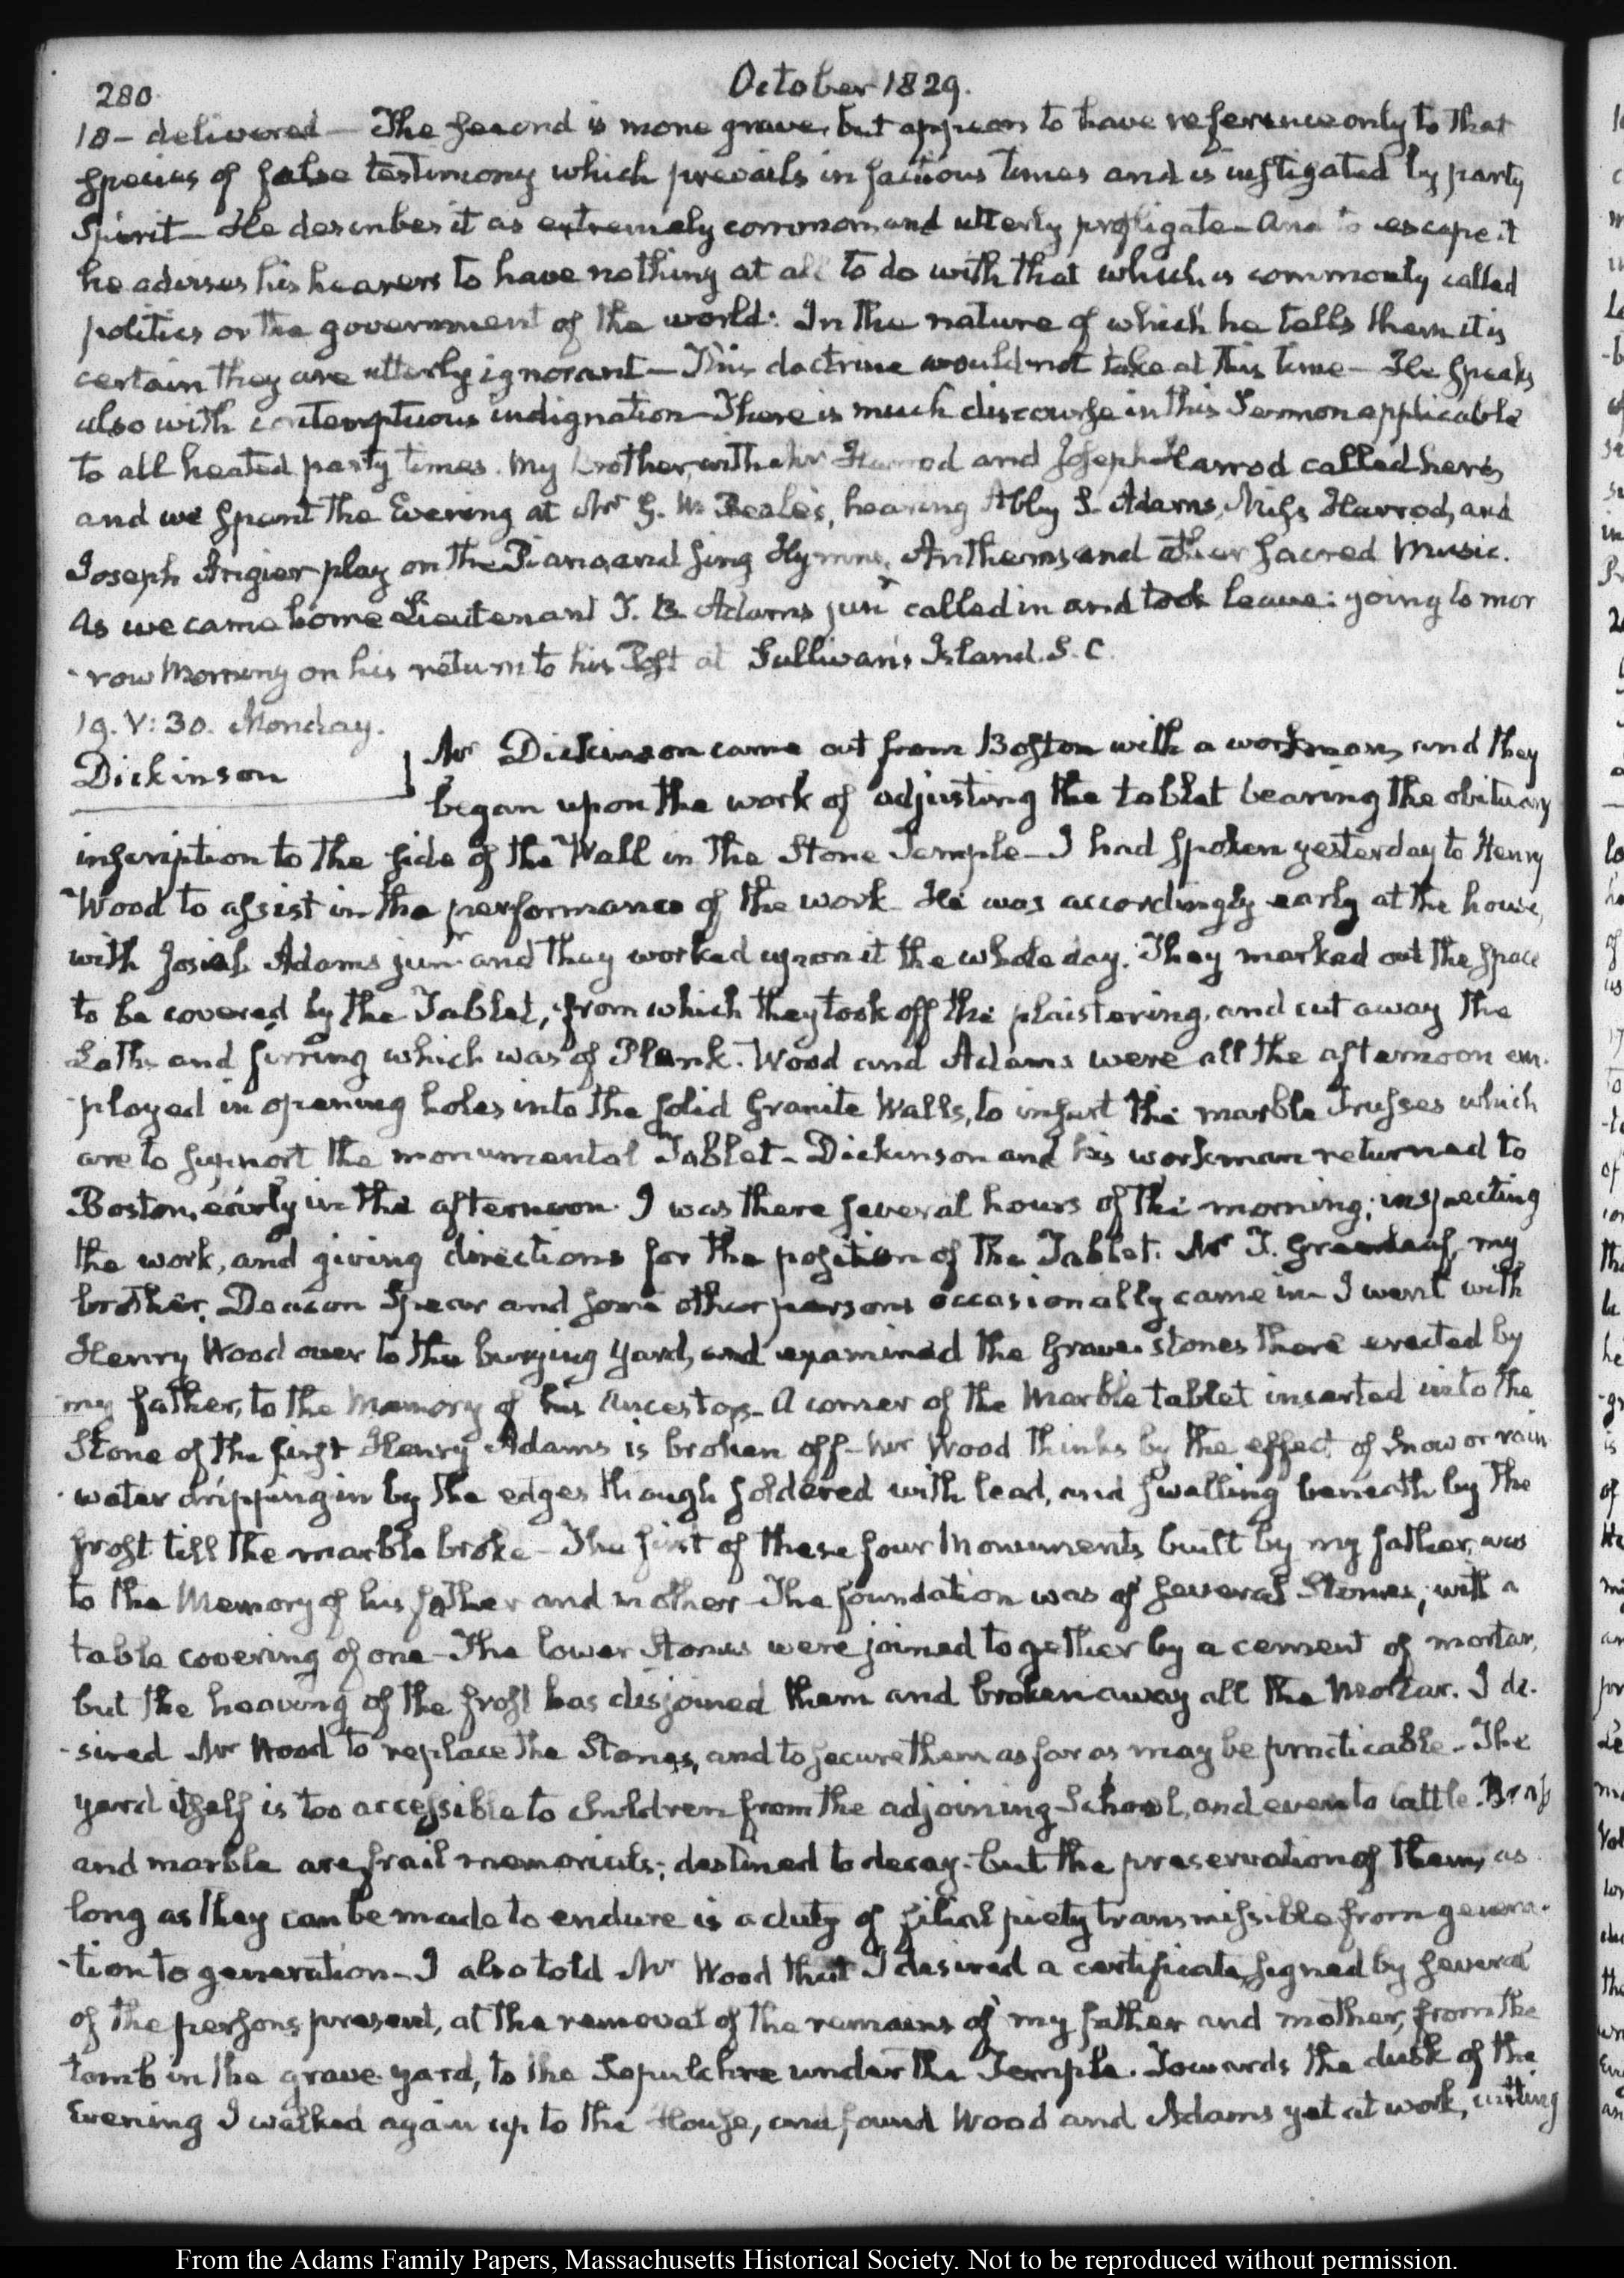 280
October 1829.
18 - delivered - The second is more grave, but appears to have reference only to that
species of false testimony which prevails in factious times and is instigated by party
Spirit - He describes it as extremely common and utterly profligate - And to escape it
he advises his hearers to have nothing at all to do with that which is commonly called
politics or the government of the world: In the nature of which he tells them it is
certain they are utterly ignorant - This doctrine would not take at this time - He speaks
also with contemptuous indignation - There is much discourse in this Sermon applicable
to all heated party times. My brother, with Harrod and Joseph Harrod called here,
and we spent the Evening at Mr G. W. Beale's, hearing Abby S. Adams, Miss Harrod, and
Joseph Angier play on the Piano, and sing Hymns, Anthems and other sacred Music.
As we came home Lieutenant T. B. Adams junr called in and took leave: going to mor
-row Morning on his return to his Post at Sullivan's Island. S. C.
19. V: 30. Monday.
Dickinson
Mr Dickinson came out from Boston with a workman, and they
began upon the work of adjusting the tablet bearing the obituary
inscription to the side of the Wall in the Stone Temple - I had spoken yesterday to Henry
Wood to assist in the performance of the work - He was accordingly early at the house,
with Josiah Adams junr and they worked upon it the whole day. They marked out the space
to be covered by the Tablet, from which they took off the plaistering, and cut away the
Laths and furring which was of Plank. Wood and Adams were all the afternoon em-
-ployed in opening holes into the solid Granite Walls, to insert the marble Trusses which
are to support the monumental Tablet - Dickinson and his workman returned to
Boston, early in the afternoon. I was there several hours of the morning; inspecting
the work, and giving directions for the position of the Tablet. Mr T. Greenleaf, my
brother, Deacon Spear and some other persons occasionally came in - I went with
Henry Wood over to the burying yard, and examined the Grave stones there erected by
my father, to the Memory of his Ancestors - A corner of the Marble tablet inserted into the
Stone of the first Henry Adams is broken off - Mr Wood thinks by the effect of Snow or rain
-water dripping in by the edges though soldered with lead, and swelling beneath by the
frost till the marble broke - The first of these four Monuments built by my father, was
to the Memory of his father and mother - The foundation was of several Stones; with a
table covering of one - The lower Stones were joined together by a cement of mortar,
but the heaving of the frost has disjoined them and broken away all the Mortar. I de-
-sired Mr Wood to replace the Stones, and to secure them as far as may be practicable - The
yard itself is too accessible to children from the adjoining School, and even to Cattle. Brass
and marble are frail memorials; destined to decay - but the preservation of them, as
long as they can be made to endure is a duty of filial piety transmissible from genera-
-tion to generation - I also told Mr Wood that I desired a certificate, signed by several
of the persons present, at the removal of the remains of my father and mother, from the
tomb in the grave yard, to the Sepulchre under the Temple. Towards the dusk of the
Evening I walked again up to the House, and found Wood and Adams yet at work, cutting
From the Adams Family Papers, Massachusetts Historical Society. Not to be reproduced without permission.